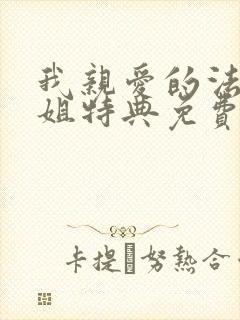 我親愛的法
姐特典免費
卡提 努熱合